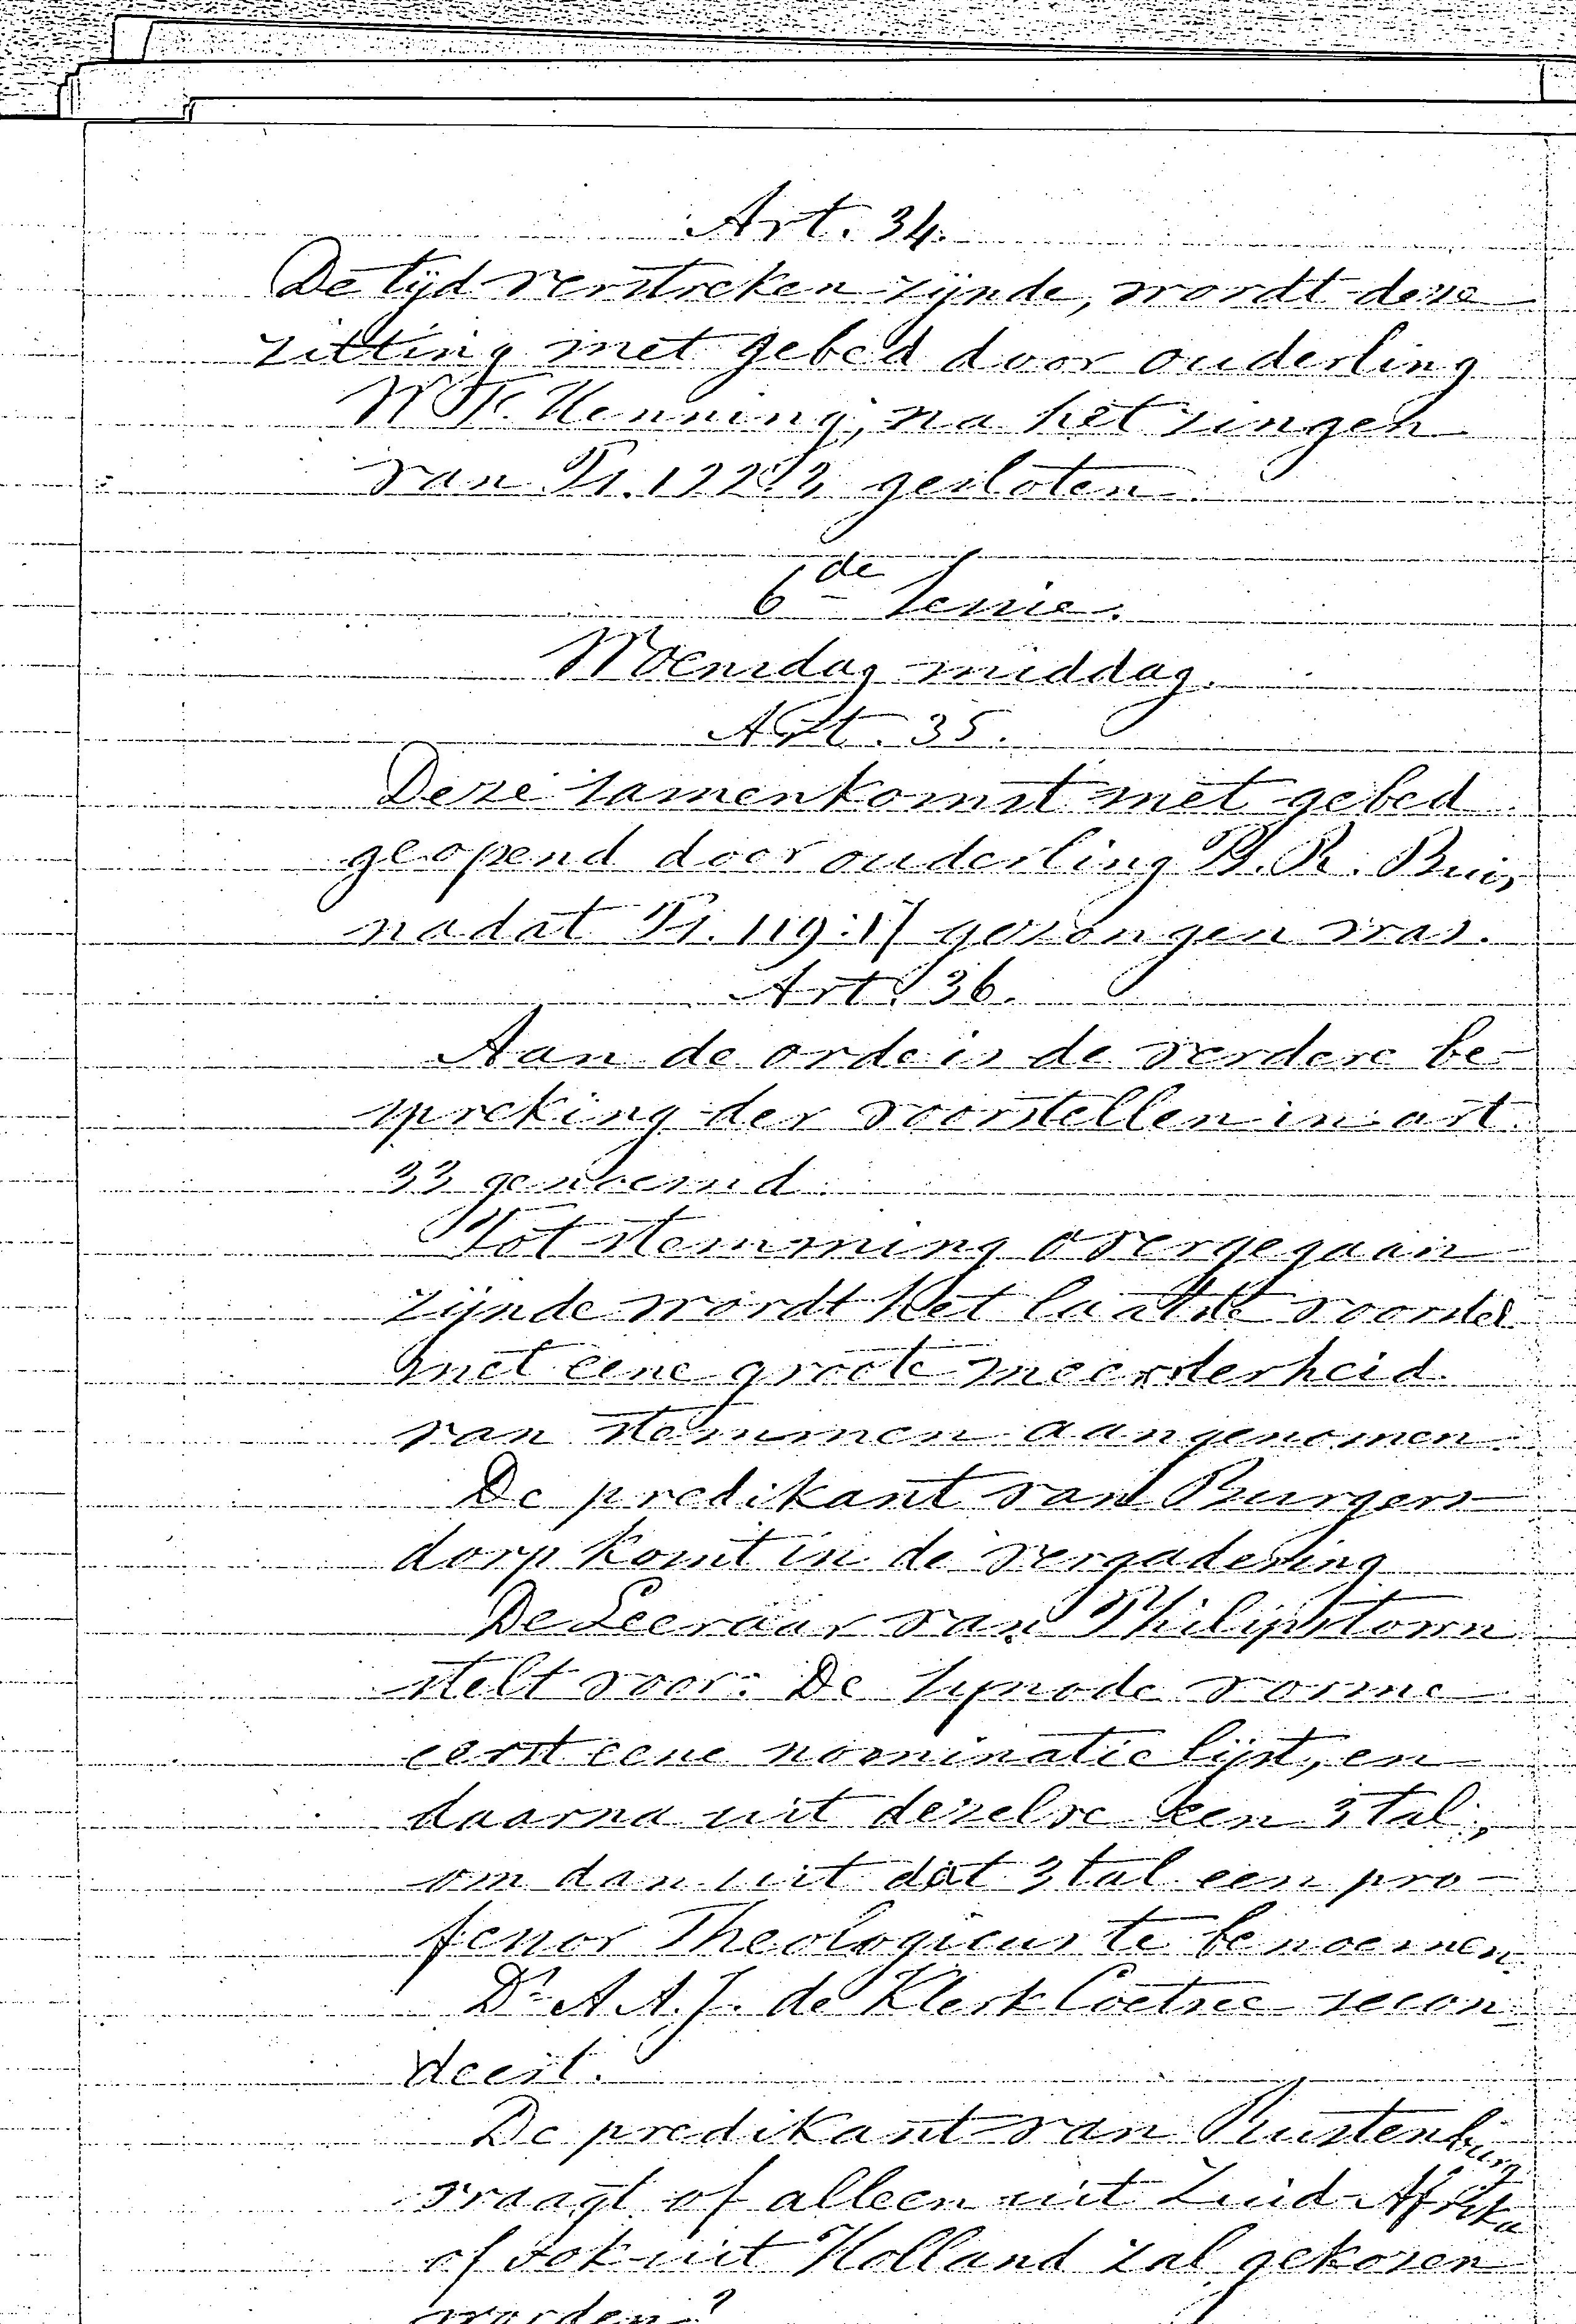 Art. 34.
De tijd verstreken zijnde, wordt deze
zitting met gebed door ouderling
Henning, na het zingen
van Ps. gesloten.
6de Sessie.
Woensdag middag.
Art. 35.
Deze samenkomst met gebed
geopend door ouderling Buis,
nadat Ps. 119:17 gezongen was.
Art. 36.
Aan de orde is de verdere be-
spreking der voorstellen in art.
33 genoemd.
Tot stemming overgegaan
zijnde wordt het laatste voorstel
met eene groote meerderheid
van stemmen aangenomen.
De predikant van Burgers
dorp komt in de vergadering
De Leeraar van Philipstown
stelt voor: De Synode vorme
eerst eene nominatie lijst, en
daarna uit dezelve een 3tal,
om dan uit dat 3tal een pro-
fessor Theologicus te benoemen.
Ds A.A.J. de Klerk Coetsee secon
deert.
De predikant van Rustenburg
vraagt of alleen uit Zuid-Afrika
of ook uit Holland zal gekozen
worden?